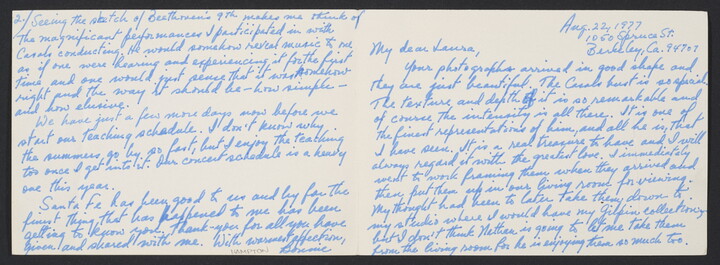 Aug. 22, 1977
1050 Spruce St.
Berkeley, Ca. 94707
My dear Laura,
Your photographs arrived in good shape and
they are just beautiful. The Casals bust is so special.
The texture and depth of it is so remarkable and
of course the intensity is all there. It is one of
the finest representations of him, and all he is, that
I have seen. It is a real treasure to have and I will
always regard it with the greatest love. I immediately
went to work framing them when they arrived and
then put them up in our living room for viewing.
My thought had been to later take them down to
my studio where I would have my Gilpin collection,
but I don't think Nathan is going to let me take them
from the living room for he is enjoying them so much too.
2./ Seeing the sketch of Beethoven's 9th makes me think of
the magnificent performances I participated in with
Casals conducting. He would somehow reveal music to one
as if one were hearing and experiencing it for the first
time and one would just sense that it was somehow
right and the way it should be - how simple -
and how elusive.
We have just a few more days now before we
start our teaching schedule. I don't know why
the summers go by so fast, but I enjoy the teaching
too once I get into it. Our concert schedule is a heavy
one this year.
Santa Fe has been good to us and by far the
finest thing that has happened to me has been
getting to know you. Thank-you for all you have
given and shared with me. With warmest affection,
Bonnie
HAMPTON